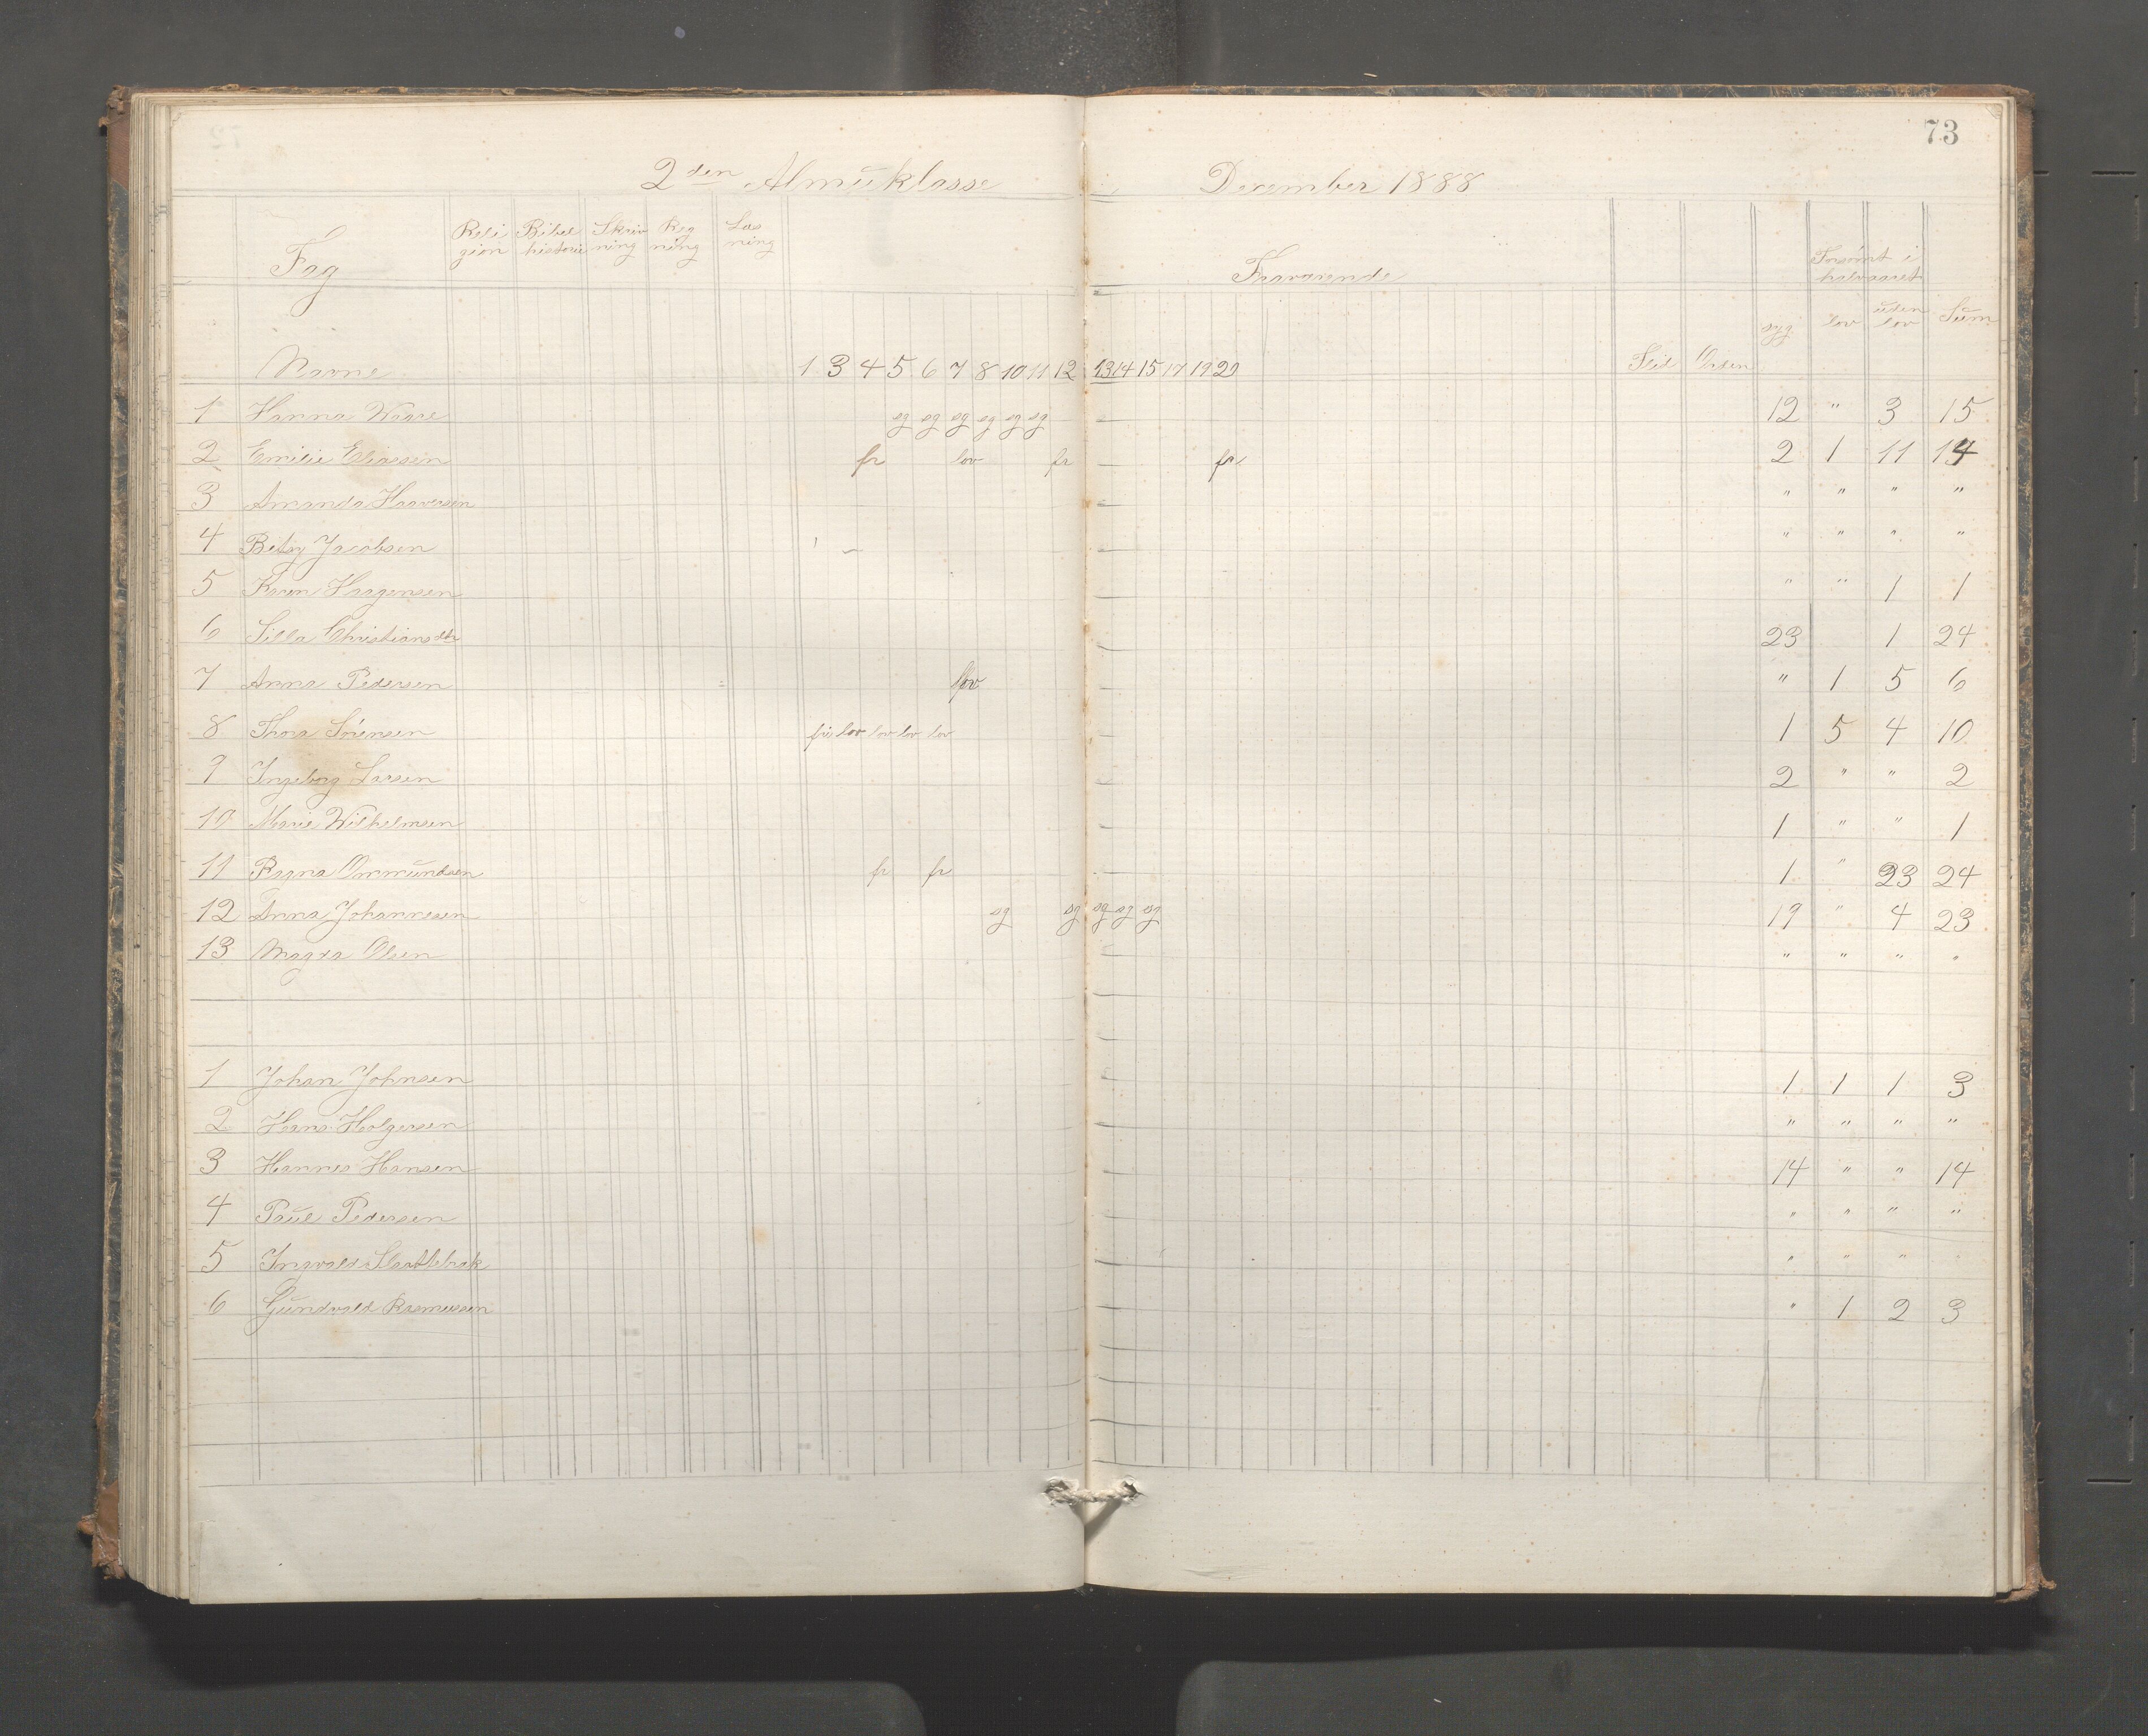 73
2den Almuklasse December 1888
Fag Religion Bibelhistorie Skrivning Regning Læsning Fraværende Forsømt i halvaaret
syg lov uden lov Sum
Navne 1 3 4 5 6 7 8 10 11 12 13 14 15 17 19 20 Flid Orden
1 Hanna Waage sg sg sg sg sg sg 12 " 3 15
2 Emilie Eliassen fr lov fr fr 2 1 11 14
3 Amanda Haaversen " " " "
4 Betsy Jacobsen " " " "
5 Karen Haagensen " " 1 1
6 Silla Christiansdtr 23 1 24
7 Anna Pedersen lov " 1 5 6
8 Thora Sörensen fri lov lov lov lov 1 5 4 10
9 Ingeborg Larsen 2 " " 2
10 Marie Wilhelmsen 1 " " 1
11 Ragna Ommundsen fr fr 1 " 23 24
12 Anna Johannesen sg sg sg sg sg 19 " 4 23
13 Magda Olsen " " " "
1 Johan Johnsen 1 1 1 3
2 Hans Holgersen " " " "
3 Hannes Hansen 14 " " 14
4 Paul Pedersen " " " "
5 Ingvald " " "
6 Gundvald Rasmussen " 1 2 3